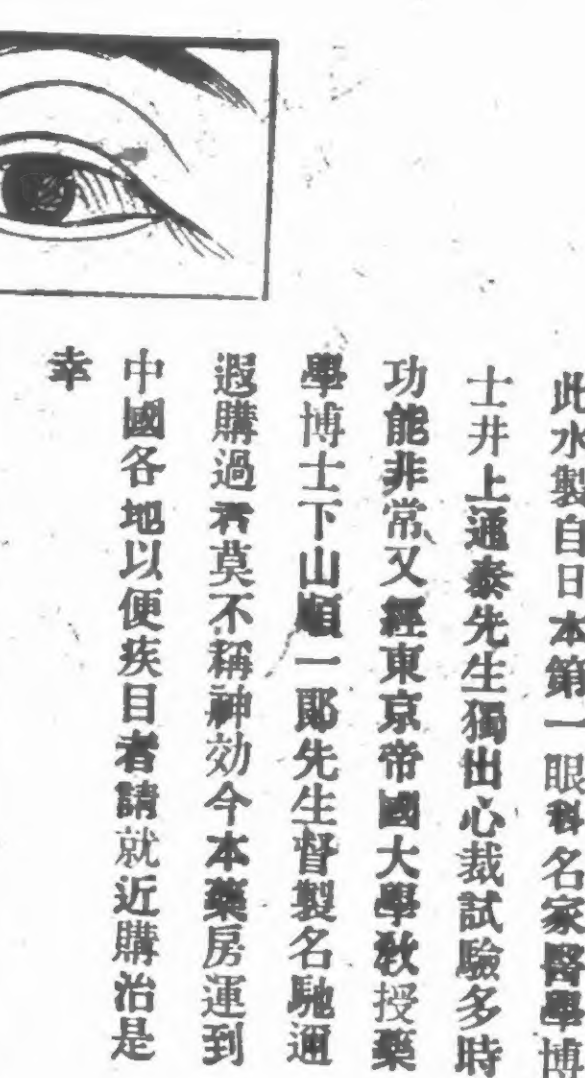 此水製自日本第一眼科名家醫學博
士井上通泰先生獨出心裁試驗多時
功能非常又經東京帝國大學敎授藥
學博士下山順一郎先生督製名馳遐
遐購過者莫不稱神効今本藥房運到
中國各地以便疾目者請就近購治是
幸